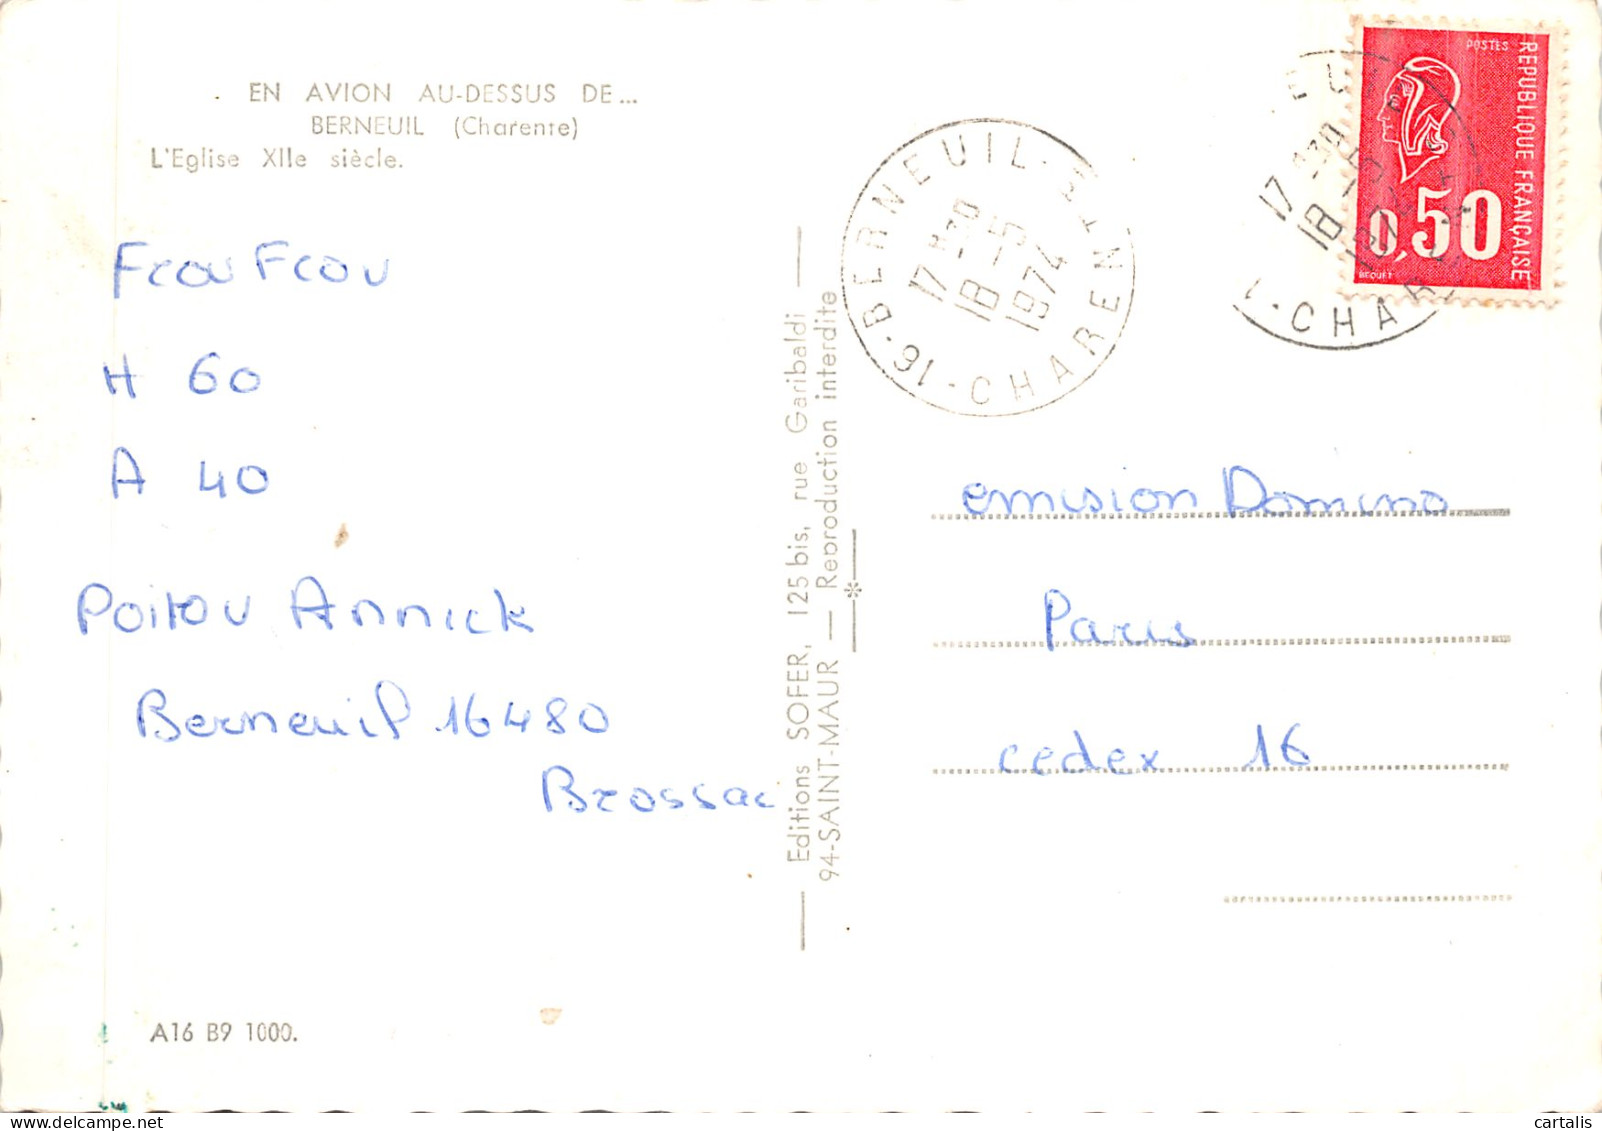 EN AVION AU-DESSUS DE...
BERNEUIL (Charente)
L'Eglise XIIe siècle.
Frou Frou
H 60
A 40
Poitou Annick
Berneuil 16480
Brossac
A16 B9 1000.
Editions SOFER, 125 bis, rue Garibaldi
94-SAINT-MAUR — Reproduction interdite
BERNEUIL
17 H30
18 -5
1974
16 - CHARENTE
POSTES
REPUBLIQUE FRANÇAISE
0,50
BEQUET
17 H30
18 -5
CHAR
emission Domino
Paris
cedex 16
cartalis